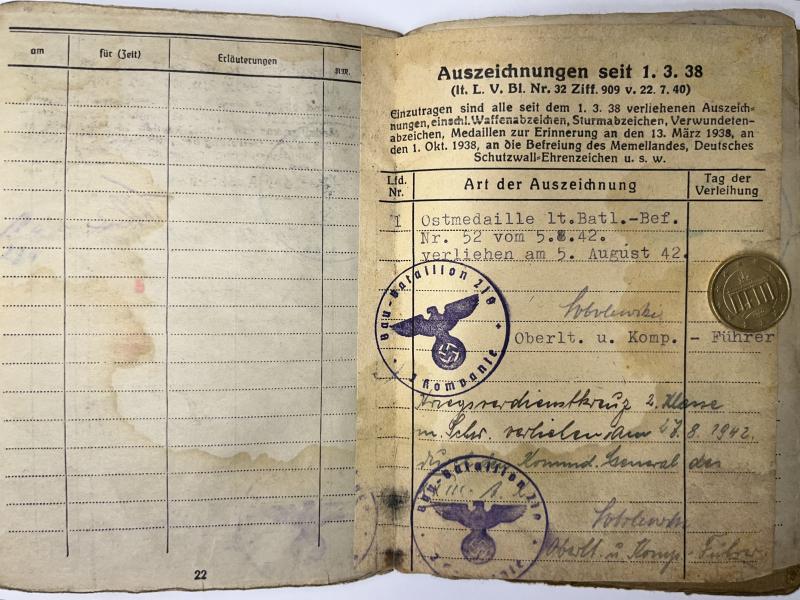 am
für (Zeit)
Erläuterungen
22
Auszeichnungen seit 1. 3. 38
(lt. L. V. Bl. Nr. 32 Ziff. 909 v. 22. 7. 40)
Einzutragen sind alle seit dem 1. 3. 38 verliehenen Auszeich-
nungen, einschl. Waffenabzeichen, Sturmabzeichen, Verwundeten-
abzeichen, Medaillen zur Erinnerung an den 13. März 1938, an
den 1. Okt. 1938, an die Befreiung des Memellandes, Deutsches
Schutzwall-Ehrenzeichen u. s. w.
Lfd. Nr.
Art der Auszeichnung
Tag der Verleihung
1 Ostmedaille lt.Batl.-Bef.
Nr. 52 vom 5.8.42.
verliehen am 5. August 42.
Bau-Bataillon 210
Kompanie
Sobolewski
Oberlt. u. Komp. - Führer
Kriegsverdienstkreuz 2. Klasse
m. Schw. verliehen am 8. 1942
Kommd. General des
Bau-Bataillon 210
Sobolewski
Oberlt. u. Komp.-Führer